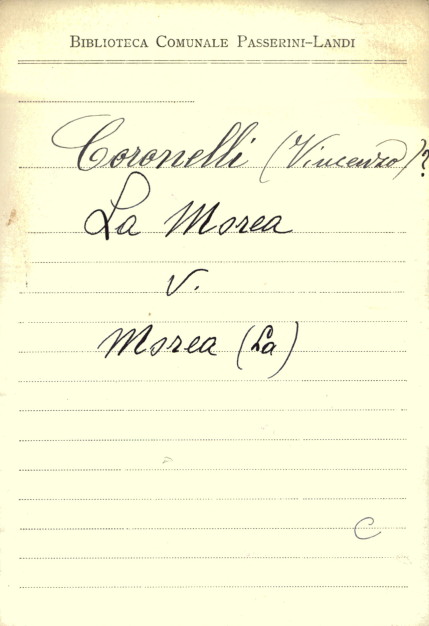 BIBLIOTECA COMUNALE PASSERINI-LANDI
Coronelli (Vincenzo)?
La Morea
v.
Morea (La)
C